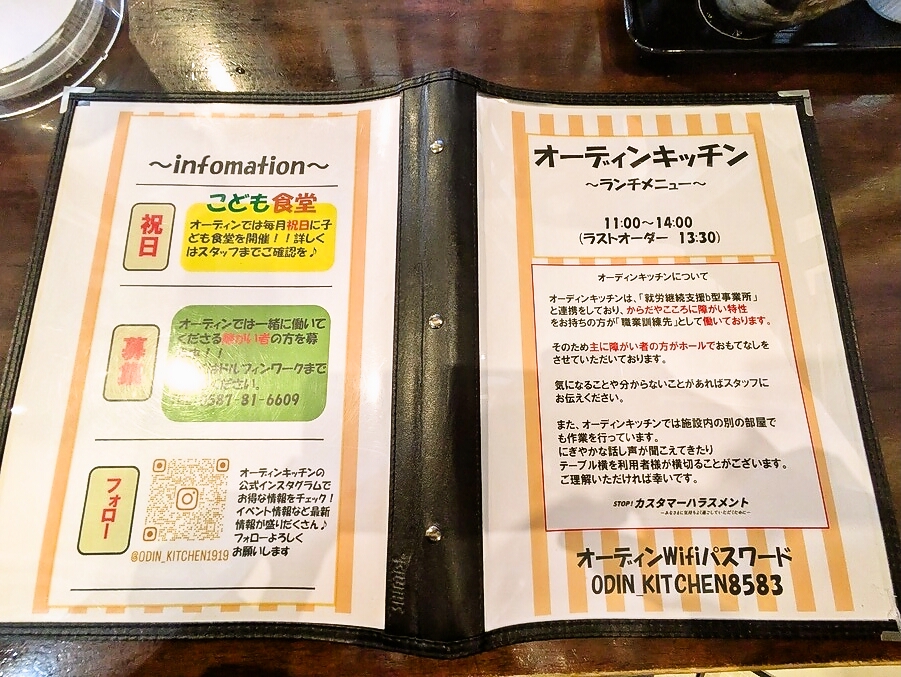 〜infomation〜
祝日
こども食堂
オーディンでは毎月祝日に子
ども食堂を開催！！詳しく
はスタッフまでご確認を♪
募集
オーディンでは一緒に働いて
くださる障がい者の方を募
！！
ドルフィンワークまで
ださい。
0587-81-6609
フォロー
@ODIN_KITCHEN1919
オーディンキッチンの
公式インスタグラムで
お得な情報をチェック！
イベント情報など最新
情報が盛りだくさん♪
フォローよろしく
お願いします
オーディンキッチン
〜ランチメニュー〜
11:00〜14:00
(ラストオーダー 13:30)
オーディンキッチンについて
オーディンキッチンは、「就労継続支援b型事業所」
と連携をしており、からだやこころに障がい特性
をお持ちの方が「職業訓練先」として働いております。
そのため主に障がい者の方がホールでおもてなしを
させていただいております。
気になることや分からないことがあればスタッフに
お伝えください。
また、オーディンキッチンでは施設内の別の部屋で
も作業を行っています。
にぎやかな話し声が聞こえてきたり
テーブル横を利用者様が横切ることがございます。
ご理解いただければ幸いです。
STOP! カスタマーハラスメント
オーディンWifiパスワード
ODIN_KITCHEN8583